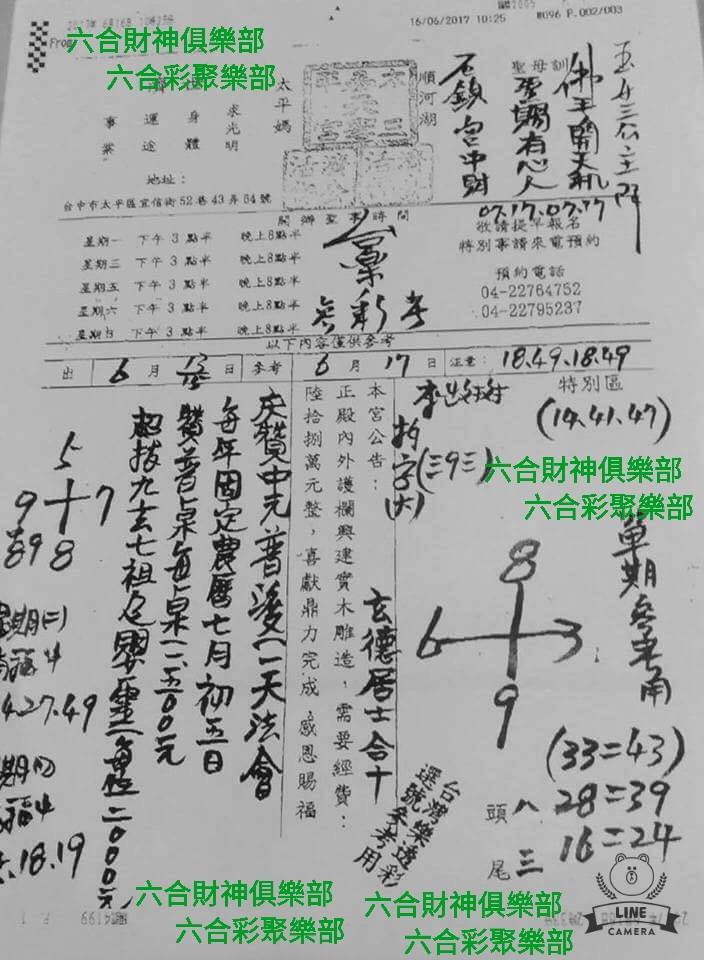 2017年 6月16日 10時25分
16/06/2017 10:25
M096 P.002/003
From
六合財神俱樂部
六合彩聚樂部
太平媽
求光明
身體
運途
事業
順河湖
聖母訓
佛王開天机
賜有心人
07.17.07.77
地址：
台中市太平區宜信街52巷43弄64號
開辦聖事時間
星期一 下午 3 點半 晚上8點半
星期三 下午 3 點半 晚上8點半
星期五 下午 3 點半 晚上8點半
星期六 下午 3 點半 晚上8點半
星期日 下午 3 點半 晚上8點半
敬請提早報名
特別事請來電預約
預約電話
04-22764752
04-22795237
以下內容僅供參考
出 6 月 日 參考 6 月 17 日 注意： 18.49.18.49
特別區
(14.41.47)
六合財神俱樂部
六合彩聚樂部
拆字(三9三)
(大)
本宮公告：
正殿內外護欄興建實木雕造，需要經費：
陸拾捌萬元整，喜獻鼎力完成，感恩賜福
玄德居士合十
慶贊中元普渡(一天法會
每年固定農曆七月初五日
贊普桌每桌(二五00元
超拔九玄七祖及嬰靈(每位二000元
5
9 7
8
89
27.49
.18.19
8
6 3
9
(33=43)
頭 八 28=39
尾 三 16=24
台灣樂透彩
選號參考用
六合財神俱樂部
六合彩聚樂部
六合財神俱樂部
六合彩聚樂部
LINE
CAMERA